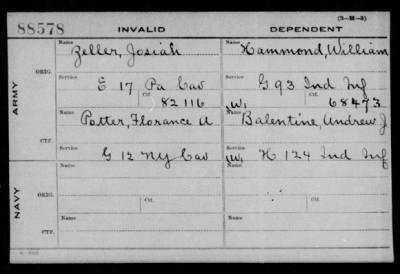 (3-M-3)
88578 INVALID DEPENDENT
Name Name
Zeller, Josiah Hammond, William
ARMY
ORIG. Service Service
E 17 Pa Cav G 93 Ind Inf
Ctf. Ctf.
82116 (W) 68473
Name Name
Potter, Florance A Balentine, Andrew J
CTF. Service Service
G 12 NY Cav (W) H 124 Ind Inf
NAVY
Name Name
ORIG. Ctf. Ctf.
Name Name
CTF.